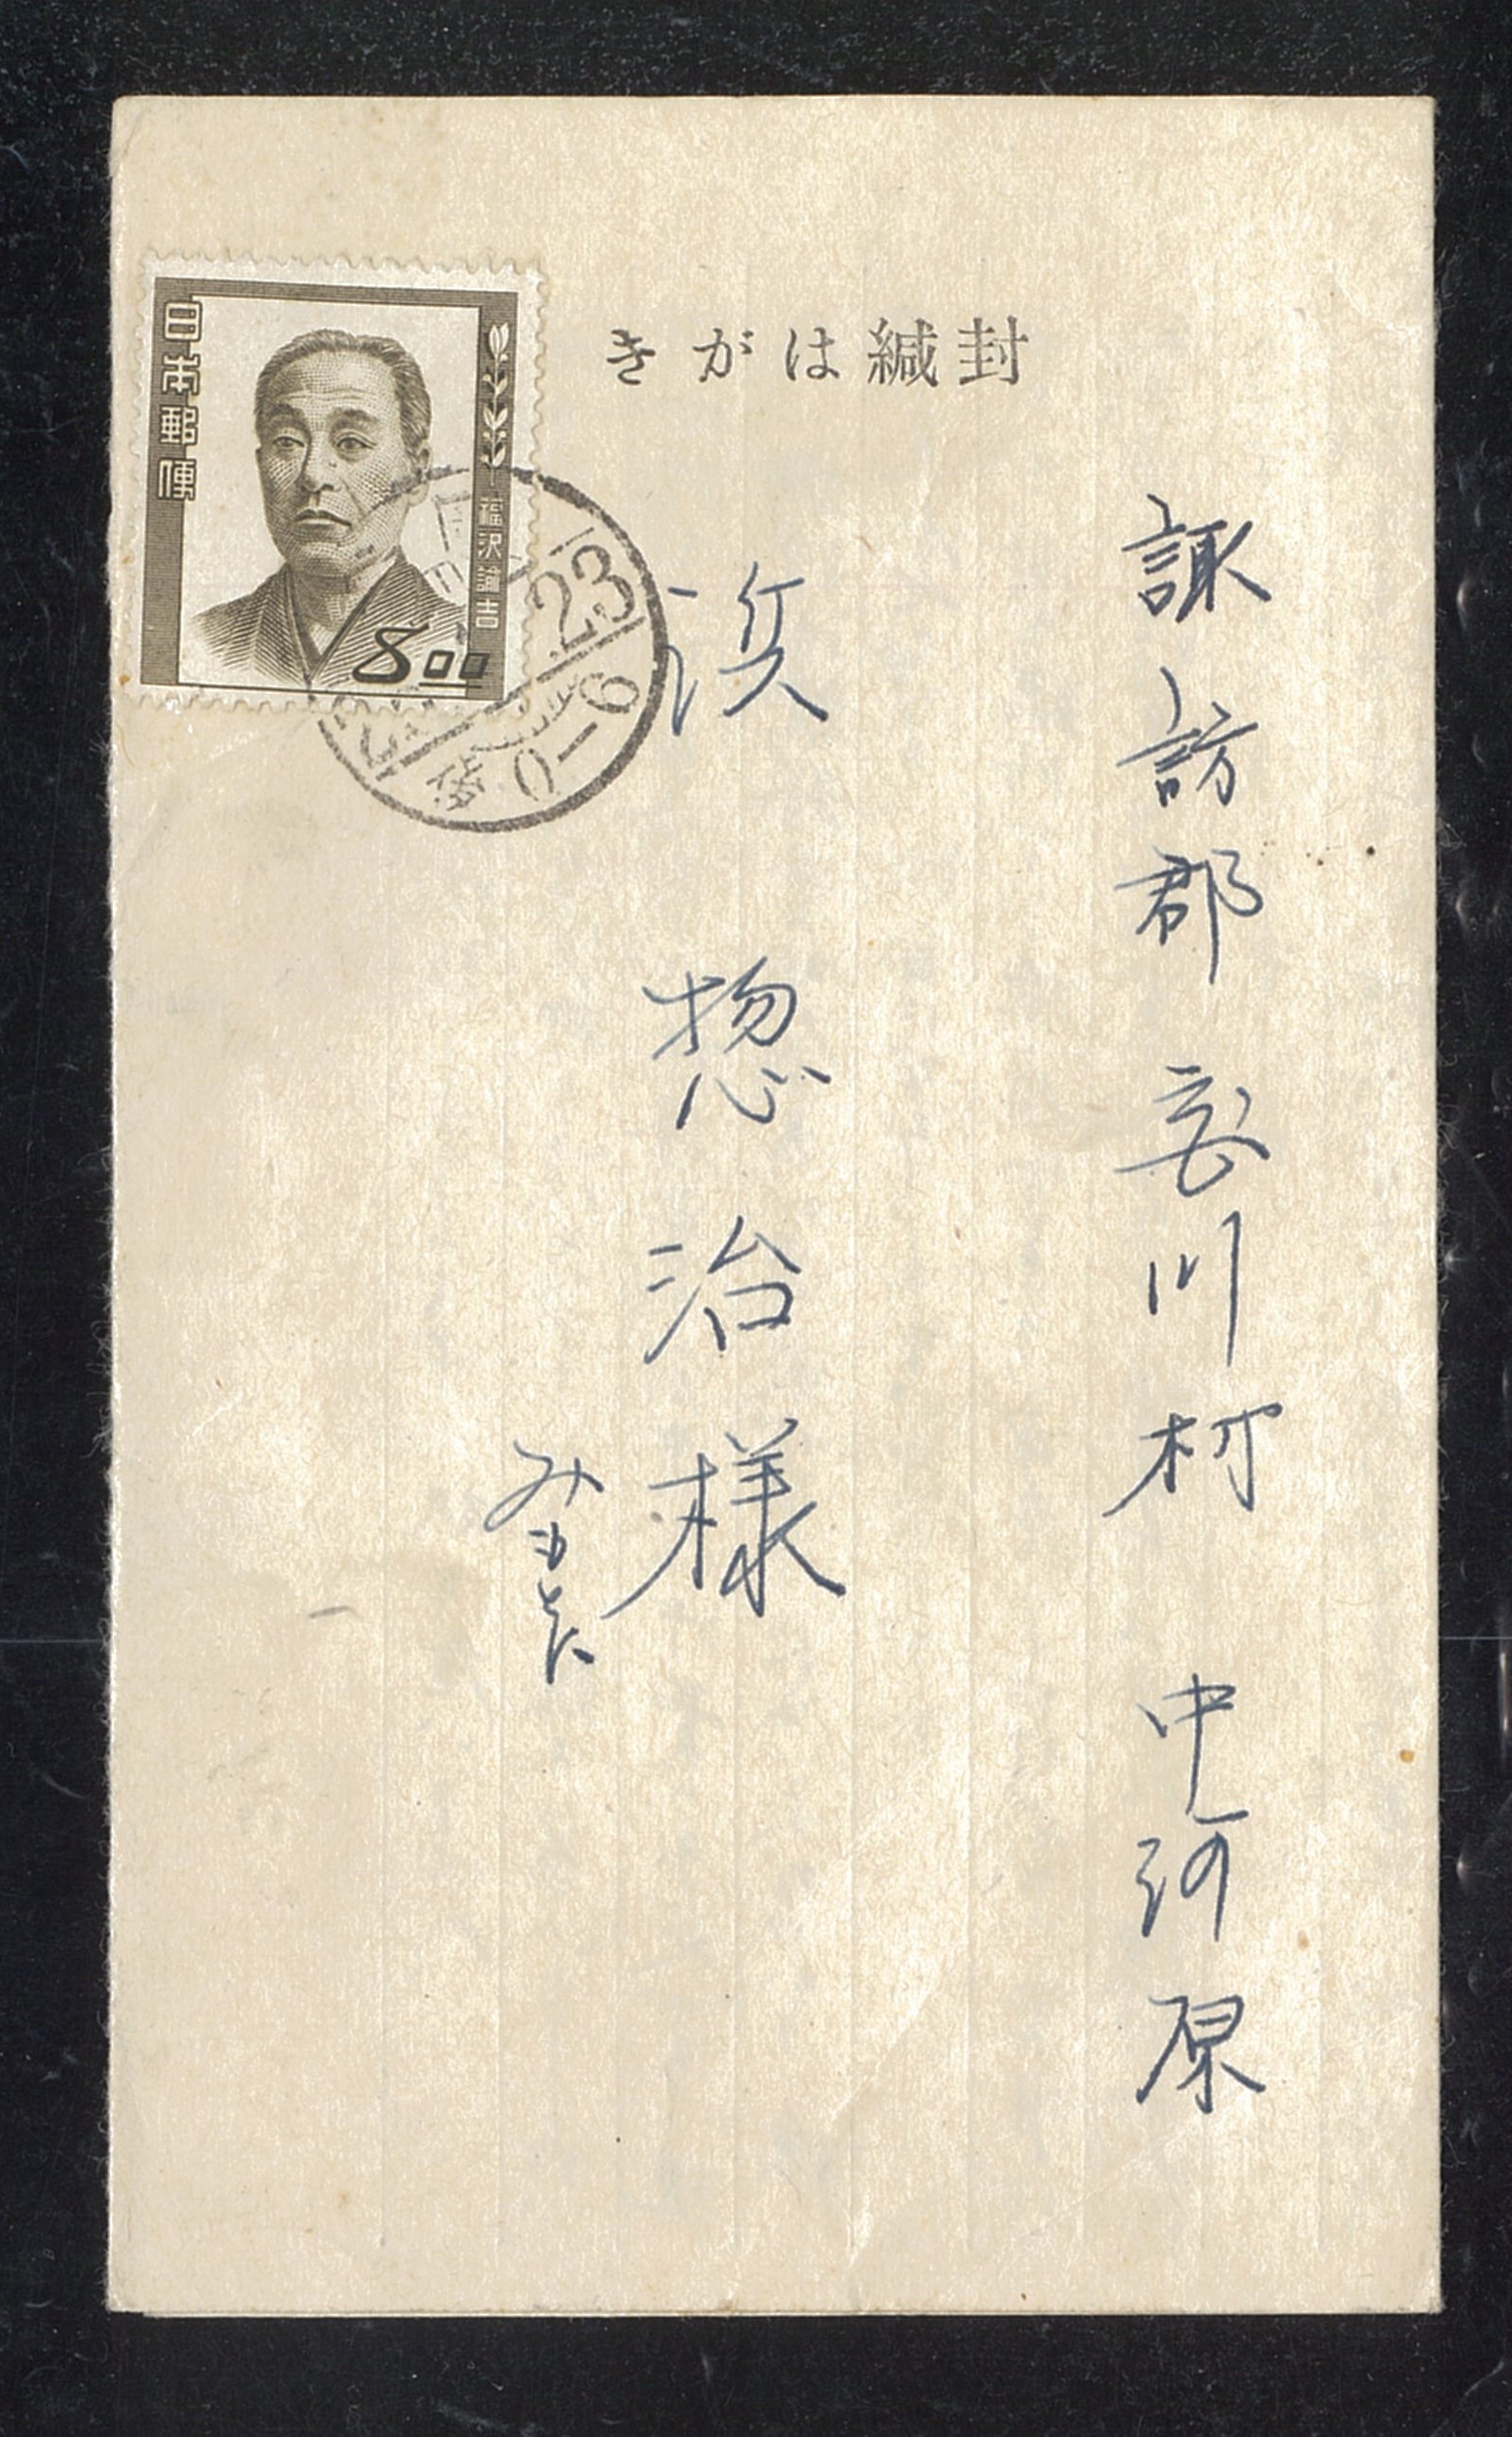 日本郵便
福沢諭吉
8.00
封緘はがき
23
后 0-6
諏訪郡宮川村 中河原
浜 惣治様
みもとへ